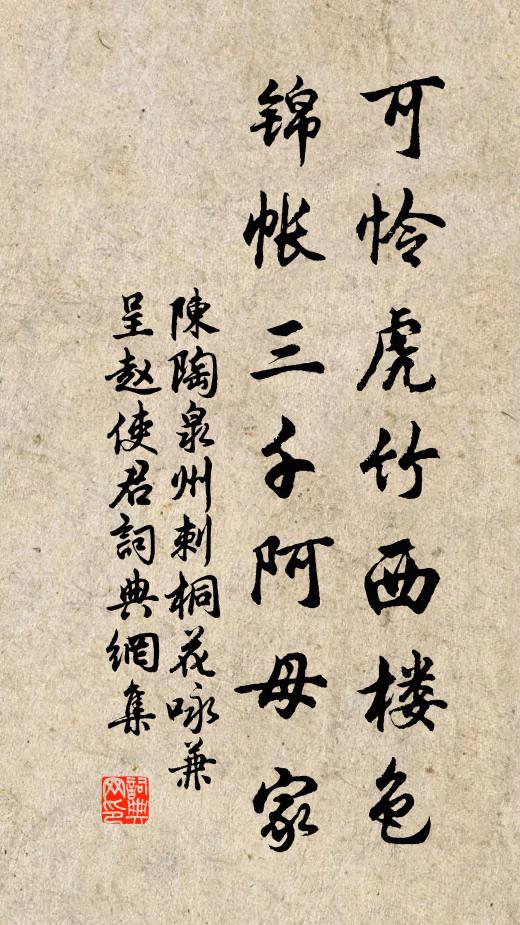 可怜虎竹西楼色
锦帐三千阿母家
陳陶泉州刺桐花咏兼
呈赵使君詞典網集
詞典
网印